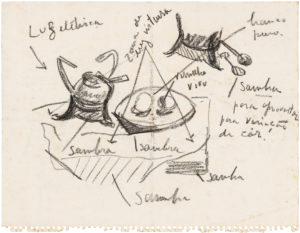 Luz elétrica
zona de mistura
luz
branco
puro.
vermelho
vivo
sombra
para aproveitar
para variação
de côr!
sombra
sombra
sombra
sombra